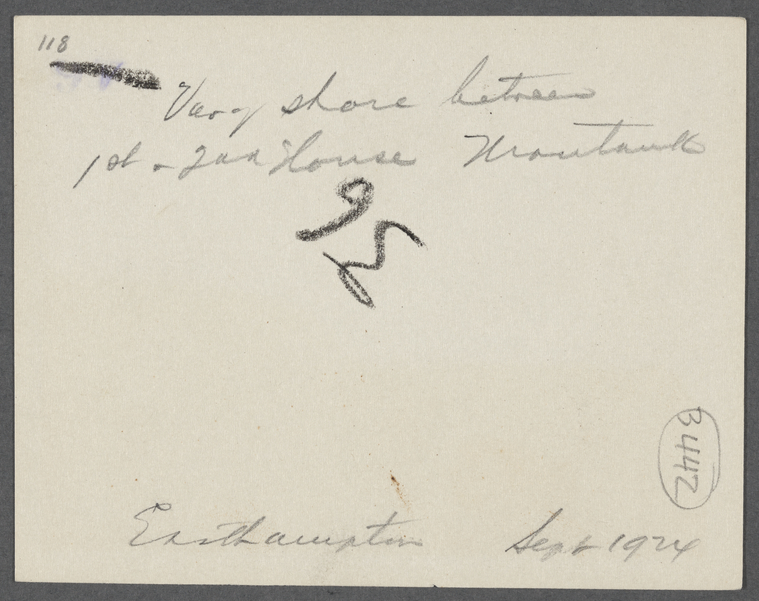 118
shore between
1st & 2nd House Montauk
95
B442
Easthampton Sept 1924